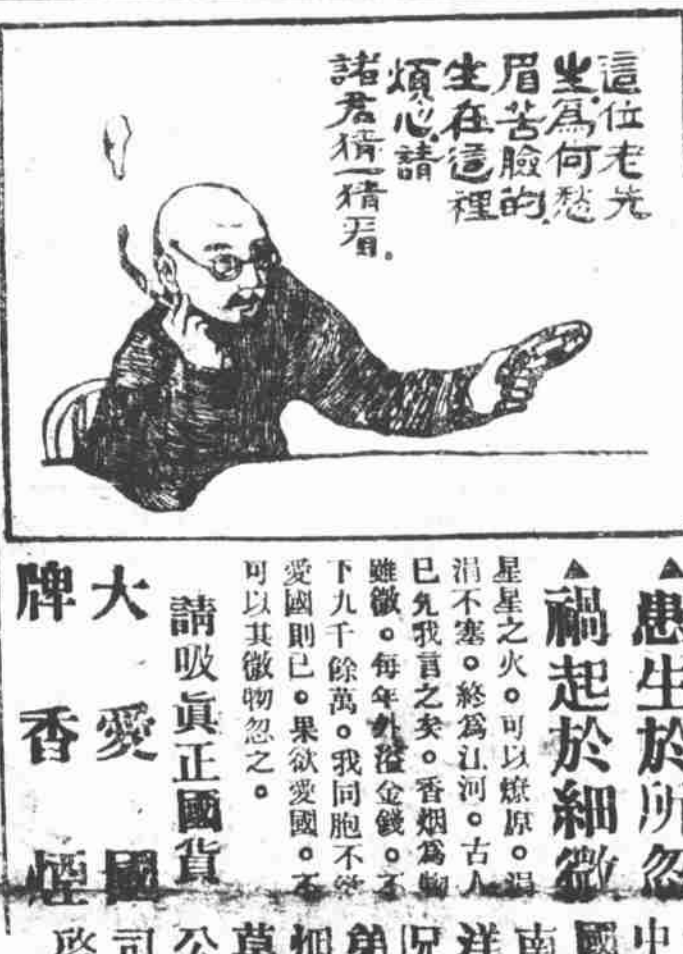 這位老先
生爲何愁
眉苦臉的
生在這裡
煩心請
諸君猜一猜看。
▲患生於所忽
▲禍起於細微
星星之火。可以燎原。涓
涓不塞。終爲江河。古人
已先我言之矣。香烟爲物
雖微。每年外溢金錢。不
下九千餘萬。我同胞不欲
愛國則已。果欲愛國。不
可以其微物忽之。
請吸眞正國貨
大愛國
牌香煙
中國南洋兄弟烟草公司啓